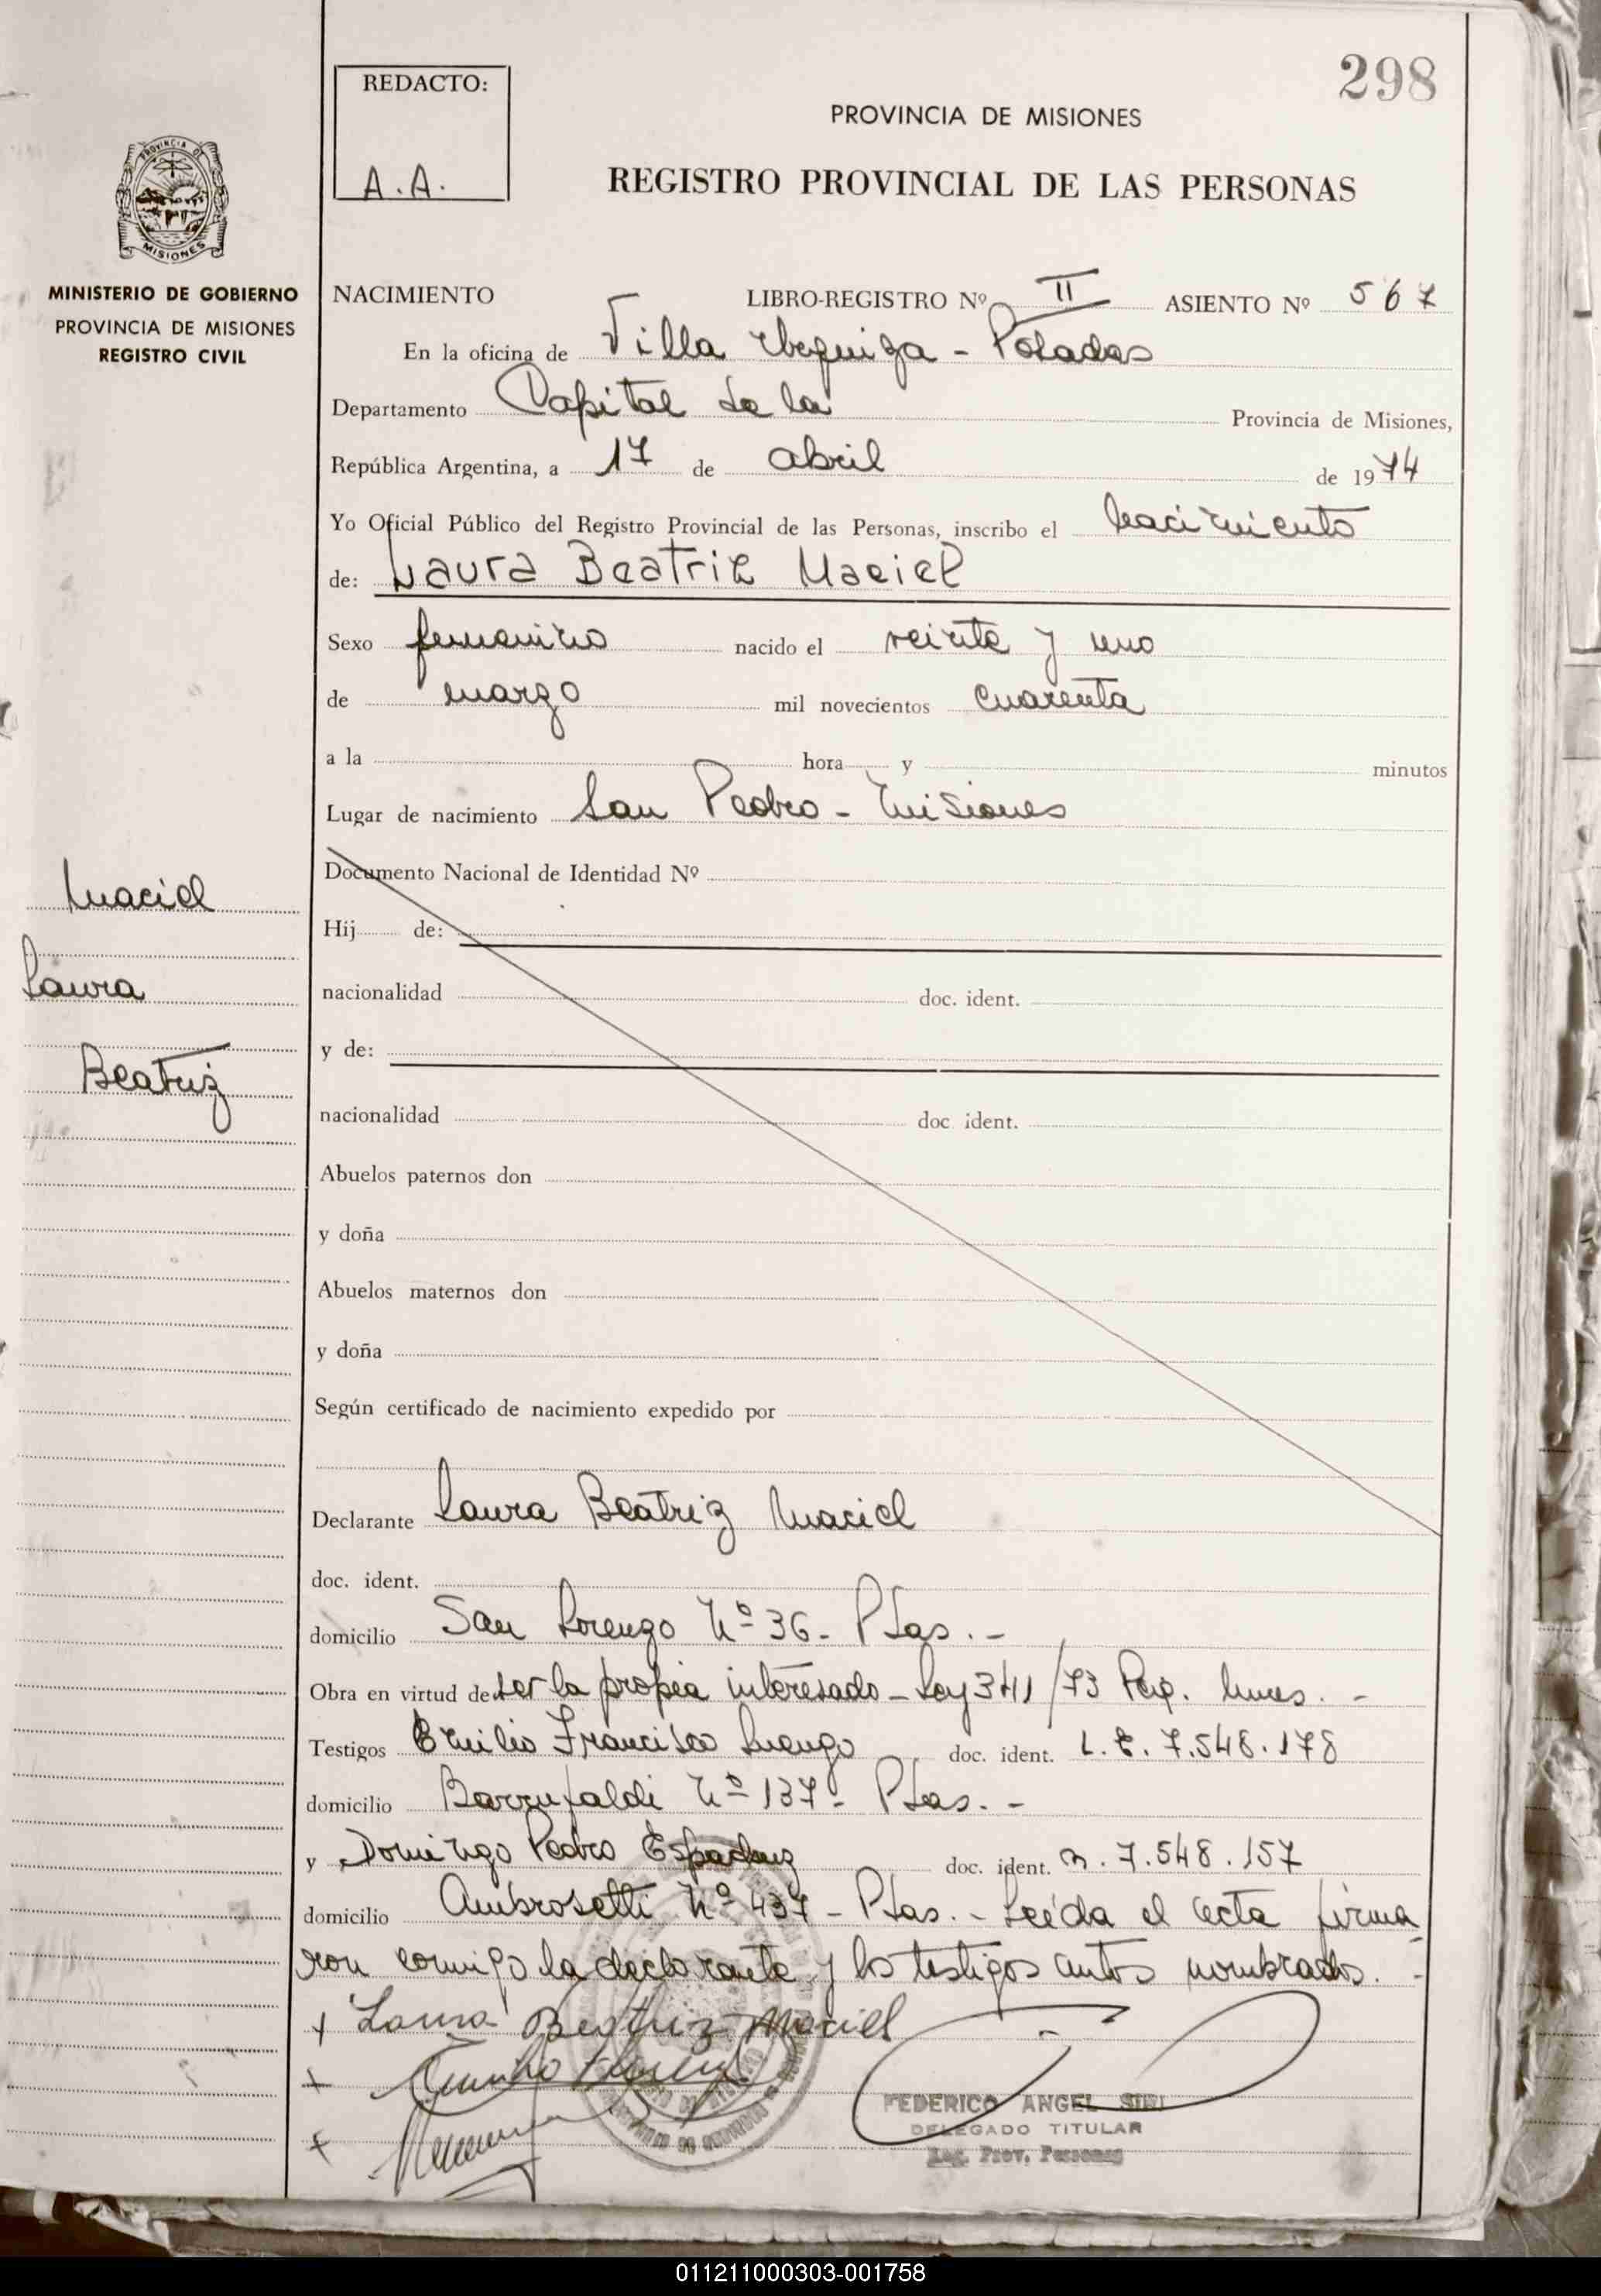 298
REDACTO:
A.A.
PROVINCIA DE MISIONES
REGISTRO PROVINCIAL DE LAS PERSONAS
PROVINCIA DE
MISIONES
MINISTERIO DE GOBIERNO
PROVINCIA DE MISIONES
REGISTRO CIVIL
NACIMIENTO LIBRO-REGISTRO Nº II ASIENTO Nº 567
En la oficina de Villa - Posadas
Departamento Capital de la Provincia de Misiones,
República Argentina, a 17 de abril de 1974
Yo Oficial Público del Registro Provincial de las Personas, inscribo el nacimiento
de: Laura Beatriz Maciel
Sexo femenino nacido el veinte y uno
de marzo mil novecientos cuarenta
a la hora y minutos
Lugar de nacimiento San Pedro - Misiones
Documento Nacional de Identidad Nº
Maciel
Hij de:
Laura
nacionalidad doc. ident.
y de:
Beatriz
nacionalidad doc. ident.
Abuelos paternos don
y doña
Abuelos maternos don
y doña
Según certificado de nacimiento expedido por
Declarante Laura Beatriz Maciel
doc. ident.
domicilio San Lorenzo Nº 36 - Pdas. -
Obra en virtud de ser la propia interesado - Ley 341/73 -
Testigos Emilio Francisco Luengo doc. ident. L.E. 7.548.178
domicilio Barrufaldi Nº 137 - Pdas. -
y Domingo Pedro doc. ident. M. 7.548.157
domicilio Ambrosetti Nº 437 - Pdas. - Leída el acta firma
ron conmigo la declarante y los testigos antes nombrados. -
+ Laura Beatriz Maciel
+
+
FEDERICO ANGEL SIRI
DELEGADO TITULAR
Reg. Prov. Personas
011211000303-001758